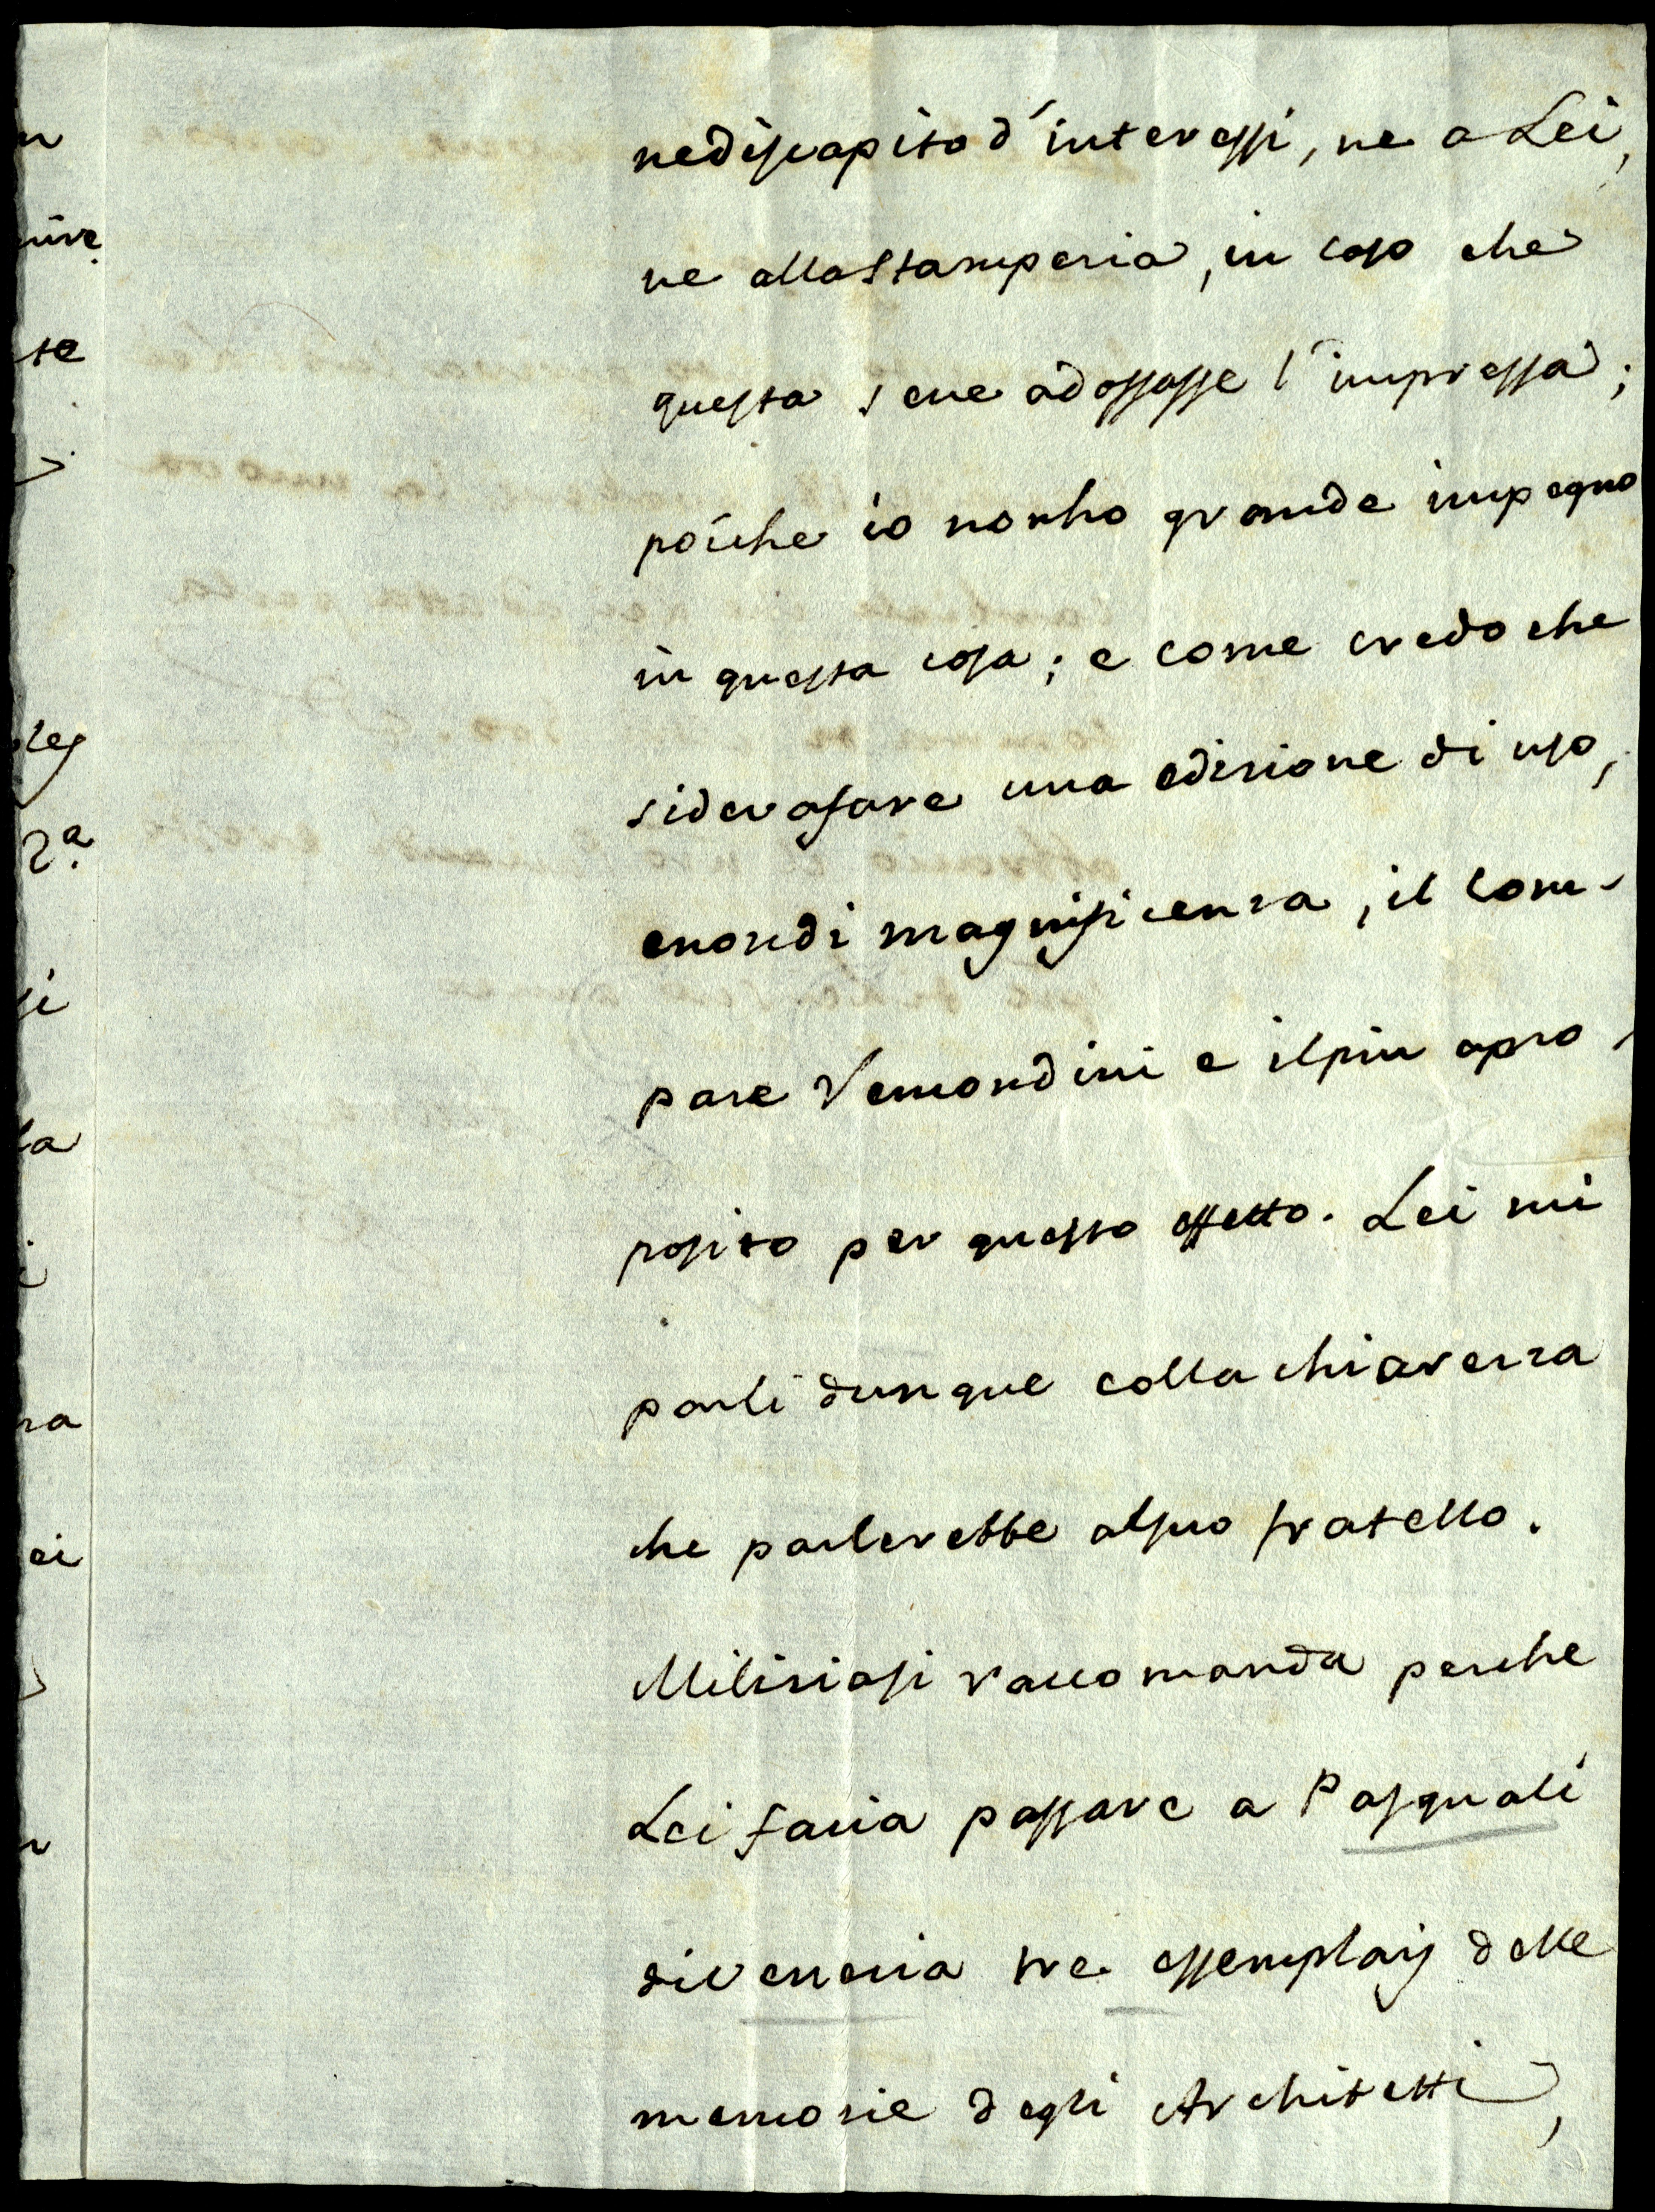 ne discapito d'interessi, ne a Lei,
ne alla Stamperia, in caso che
questa se ne adossasse l'impressa;
poiche io non ho grande impegno
in questa cosa; e come credo che
si dera fare una edizione di uso,
e non di magnificenza, il Com-
pare Remondini e il piu apro-
posito per questo effetto. Lei mi
parli dunque colla chiarezza
che parlerebbe al suo fratello.
Milizia si raccomanda perche
Lei facia passare a Pasquali
di Venezia tre essemplarj delle
memorie degli Architetti,